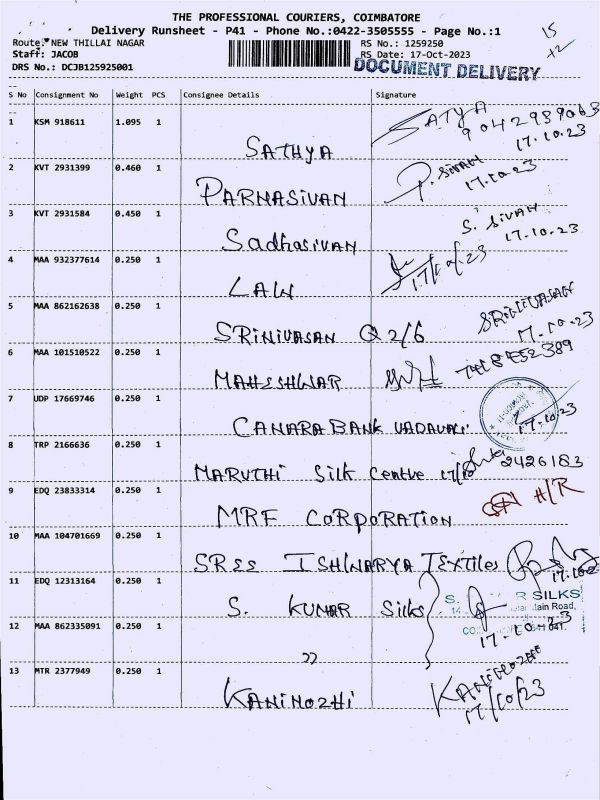 THE PROFESSIONAL COURIERS, COIMBATORE
Delivery Runsheet - P41 - Phone No.:0422-3505555 - Page No.:1
Route: NEW THILLAI NAGAR RS No.: 1259250
Staff: JACOB RS Date: 17-Oct-2023
DRS No.: DCJB125925001 DOCUMENT DELIVERY
15
+2
S No Consignment No Weight PCS Consignee Details Signature
1 KSM 918611 1.095 1 SATHYA SATYA 9042989063 17.10.23
2 KVT 2931399 0.460 1 PARMASIVAN P. SIVAN 17.10.23
3 KVT 2931584 0.450 1 Sadhasivan S. SIVAN 17.10.23
4 MAA 932377614 0.250 1 LAW 17/10/23
5 MAA 862162638 0.250 1 SRINIVASAN Q 2/6 SRINIVASAN 17.10.23
6 MAA 101510522 0.250 1 MAHESHWAR
7 UDP 17669746 0.250 1 CANARA BANK VADAVALI 17.10.23
8 TRP 2166636 0.250 1 MARUTHI Silk Centre 2426183
9 EDQ 23833314 0.250 1 MRF CORPORATION H/R
10 MAA 104701669 0.250 1 SREE ISHWARYA TEXTiles
11 EDQ 12313164 0.250 1 S. KUMAR Silks S. R SILKS
Main Road,
12 MAA 862335091 0.250 1 ,, 17-10-23
13 MTR 2377949 0.250 1 KANIMOZHI KANIMOZHI 17/10/23